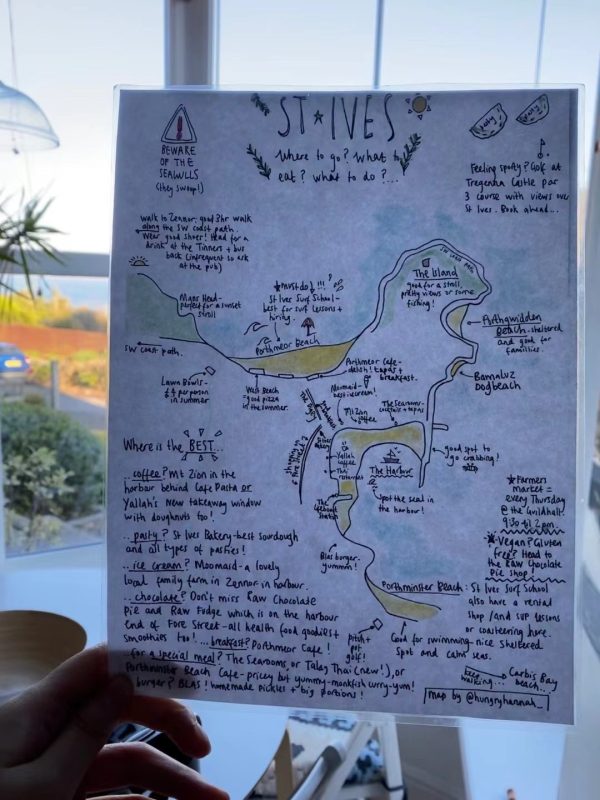 ST★IVES
Where to go? What to
eat? What to do?...
BEWARE
OF THE
SEAGULLS
(they swoop!)
Feeling sporty? Golf at
Tregenna Castle par
3 course with views over
St Ives. Book ahead...
Walk to Zennor: good 3hr walk
along the SW coast path.
Wear good shoes! Head for a
drink at the Tinners + bus
back (infrequent so ask
at the pub)
Mans Head -
perfect for a sunset
stroll
SW COAST PATH.
★MUST DO!!!
St Ives Surf School -
best for surf lessons +
hiring.
Porthmeor Beach
SW COAST PATH
The Island
good for a stroll,
pretty views or some
fishing!
Porthgwidden
Beach - sheltered
and good for
families.
Bamaluz
Dogbeach
Porthmeor Cafe -
delish! tapas +
breakfast.
Lawn Bowls -
per person
in summer
West Beach
- good pizza
in the summer.
Moomaid -
best icecream!
The Digey
Mt Zion
coffee
The Searooms -
cocktails + tapas
Shopping on
Fore Street
St Ives
Bakery
Yallah
coffee
The Harbour
Spot the seal in
the harbour!
good spot to
go crabbing!
The
Lifeboat
Station
Blas burger -
yummm!
Where is the BEST...
...coffee? Mt Zion in the
harbour behind Cafe Pasta or
Yallah's new takeaway window
with doughnuts too!
...pasty? St Ives Bakery - best sourdough
and all types of pasties!
...ice cream? Moomaid - a lovely
local family farm in Zennor in harbour.
...chocolate? Don't miss Raw Chocolate
Pie and Raw Fudge which is on the harbour
end of Fore Street - all health food goodies +
smoothies too! ...breakfast? Porthmeor Cafe!
...for a special meal? The Searooms, or Talay Thai (new!), or
Porthminster Beach Cafe - pricey but yummy - monkfish curry - yum!
burger? BLAS! homemade pickles + big portions!
★Farmers
market =
every Thursday
@ the Guildhall.
9:30 til 2pm
★Vegan? Gluten
free? Head to
the Raw Chocolate
Pie Shop
Porthminster Beach: St Ives Surf School
also have a rental
shop/and SUP lessons
or coasteering here.
Good for swimming - nice sheltered
spot and calm seas.
pitch +
putt
golf!
keep
walking...
Carbis Bay
beach...
map by @hungryhannah_